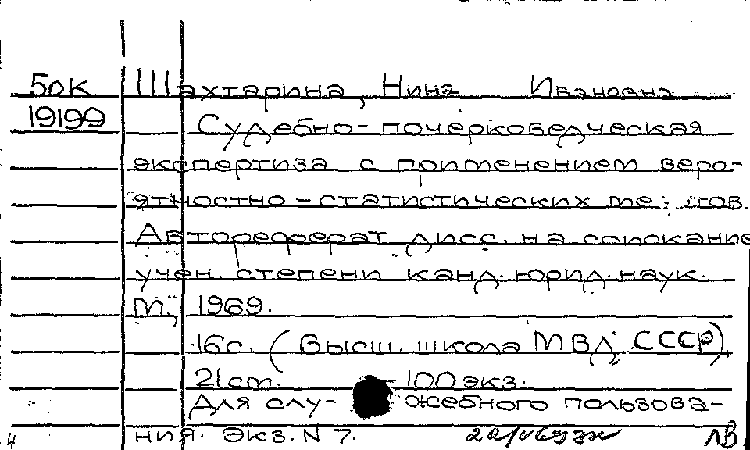 5ок Шахтарина, Нина Ивановна
19199 Судебно-почерковедческая
экспертиза с применением веро-
ятностно-статистических
Автореферат дисс. на соискание
учен. степени канд. юрид. наук.
М., 1969.
16с. (Высш. школа МВД СССР)
21см. 100экз.
Для слу-жебного пользова-
ния. Экз. N 7. ЛВ